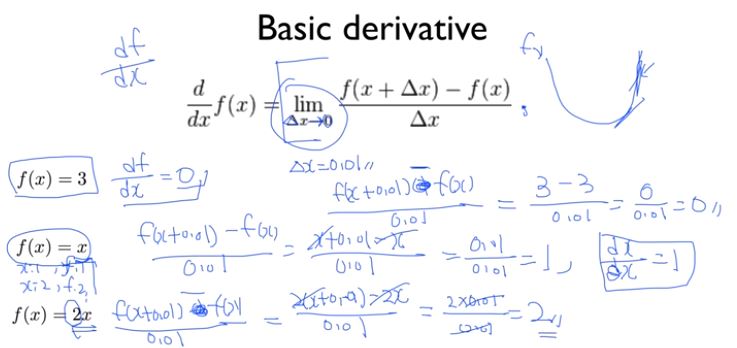 Basic derivative
df/dx
d/dx f(x) = lim Δx→0 f(x + Δx) − f(x) / Δx
Δx=0.01
f(x) = 3 df/dx = 0, f(x+0.01) - f(x) / 0.01 = 3-3 / 0.01 = 0/0.01 = 0
f(x) = x f(x+0.01) - f(x) / 0.01 = x+0.01-x / 0.01 = 0.01/0.01 = 1, dx/dx = 1
x:1, f:1
x:2, f:2
f(x) = 2x f(x+0.01) - f(x) / 0.01 = 2(x+0.01)-2x / 0.01 = 2×0.01 / 0.01 = 2